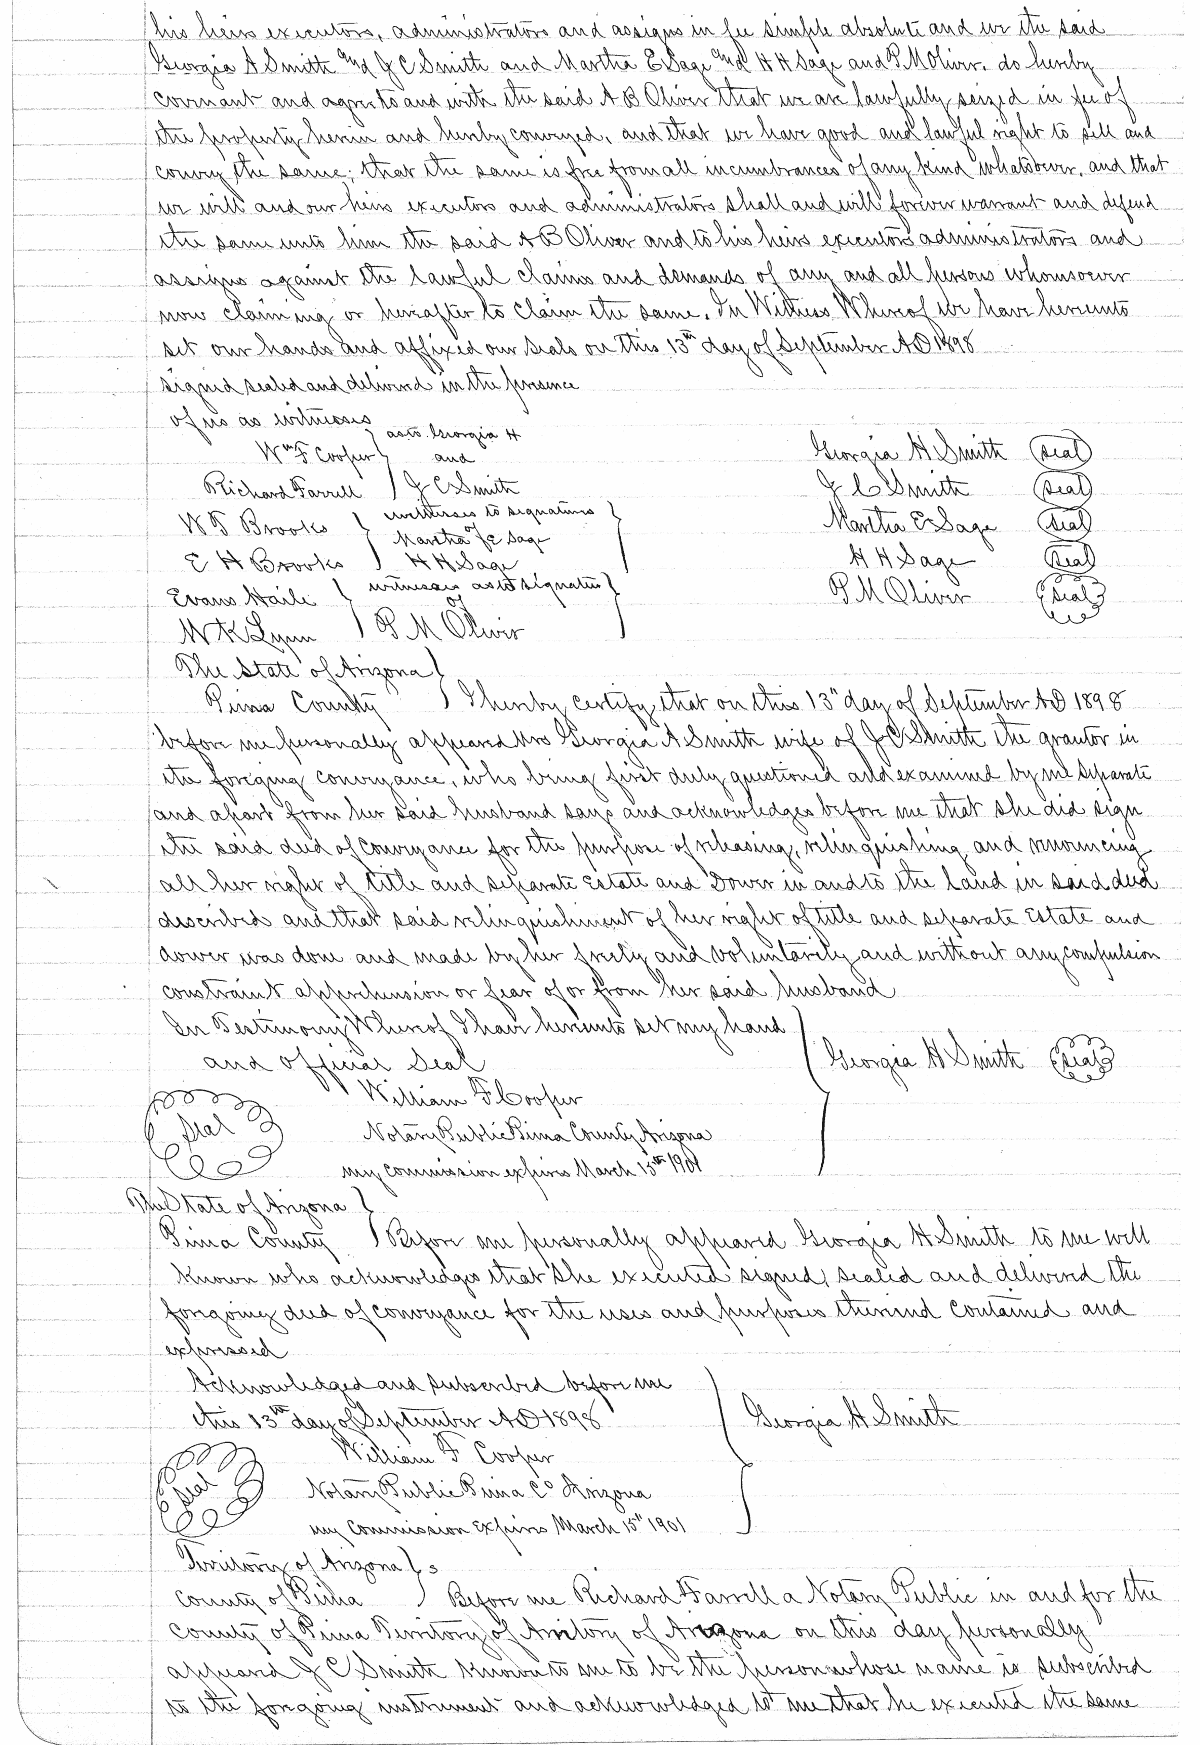 his heirs executors, administrators and assigns in fee simple absolute and we the said
Georgia A Smith and J C Smith and Martha E Sage and H H Sage and P M Oliver. do hereby
covenant and agree to and with the said A B Oliver that we are lawfully seized in fee of
the property herein and hereby conveyed, and that we have good and lawful right to sell and
convey the same; that the same is free from all incumbrances of any kind whatsoever, and that
we will and our heirs executors and administrators shall and will forever warrant and defend
the same unto him the said A B Oliver and to his heirs executors administrators and
assigns against the lawful claims and demands of any and all persons whomsoever
now claiming or hereafter to claim the same. In Witness Whereof we have hereunto
set our hands and affixed our seals on this 13th day of September A D 1898
signed sealed and delivered in the presence
of us as witnesses
as to Georgia H
Wm F Cooper } and Georgia H Smith (seal)
Richard Farrell } J C Smith J C Smith (seal)
W T Brooks } witnesses to signatures } Martha E Sage (seal)
Martha E Sage
E H Brooks } H H Sage H H Sage (seal)
Evans Haile } witnesses as to signatures } P M Oliver (seal)
of
W K Lynn } P M Oliver
The State of Arizona }
Pima County } I hereby certify that on this 13" day of September A D 1898
before me personally appeared Mrs Georgia A Smith wife of J C Smith the grantor in
the forging conveyance, who being first duly questioned and examined by me separate
and apart from her said husband says and acknowledges before me that she did sign
the said deed of conveyance for the purpose of releasing, relinquishing and renouncing
all her right of title and separate Estate and Dower in and to the land in said deed
described and that said relinquishment of her right of title and separate Estate and
dower was done and made by her freely and voluntarily and without any compulsion
constraint apprehension or fear of or from her said husband
In Testimony Whereof I have hereunto set my hand
and official Seal } Georgia H Smith (seal)
William F Cooper
Seal Notary Public Pima County Arizona
my commission expires March 15th 1901
The State of Arizona }
Pima County } Before me personally appeared Georgia H Smith to me well
known who acknowledges that she executed signed, sealed and delivered the
forgoing deed of conveyance for the uses and purposes therein contained and
expressed
Acknowledged and subscribed before me
this 13th day of September A D 1898 } Georgia H Smith
William F Cooper
Seal Notary Public Pima Co Arizona
my commission expires March 15" 1901
Territory of Arizona } s
County of Pima } Before me Richard Farrell a Notary Public in and for the
County of Pima Territory of Arritory of Arizona on this day personally
appeared J C Smith known to me to be the person whose name is subscribed
to the forgoing instrument and acknowledged to me that he executed the same